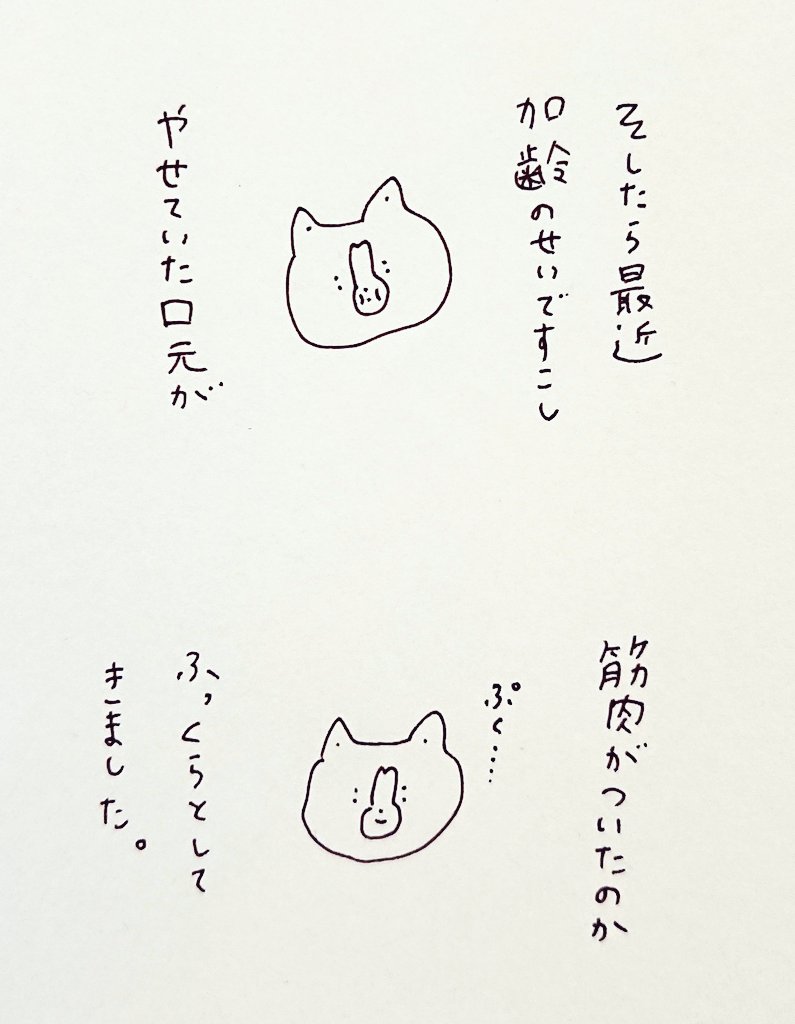 そしたら最近
加齢のせいですこし
やせていた口元が
筋肉がついたのか
ぷく……
ふっくらとして
きました。